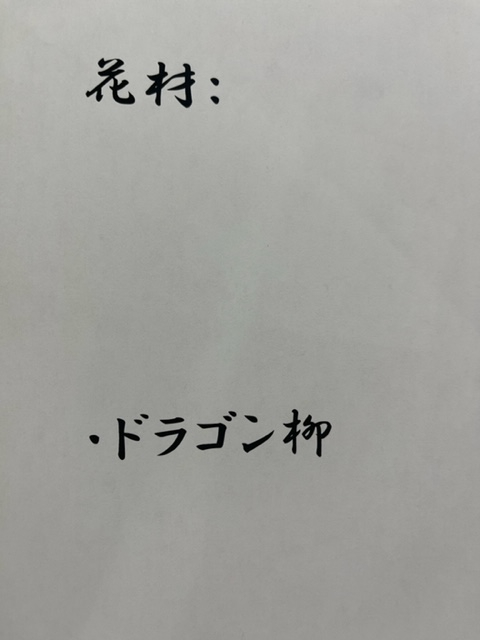 花材:
・ドラゴン柳